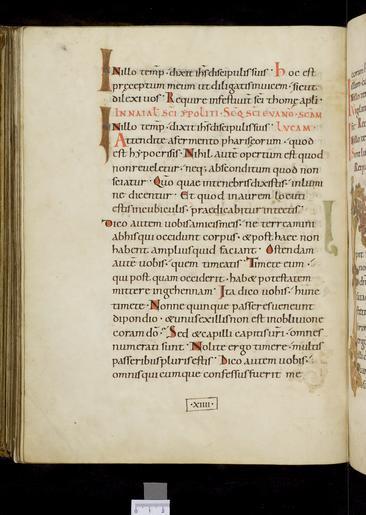 In illo temp̄. dixit ihs discipulis suis. hoc est
p̄ceptum meum ut diligatis inuicem. sicut
dilexi uos. Require in festiuit̄ sc̄i thome apl̄i.
IN NATAL̄ SC̄I YPOLITI. SEQ̄ SC̄I EUANḠ. SCDM
In illo temp̄. dixit ihs discipulis suis. LUCAM.
Attendite a fermento phariseorum. quod
est hypocrisis. Nihil autē opertum est quod
non reueletur. neq; absconditum quod non
sciatur. Quo quae in tenebris dixistis. in lumi
ne dicentur. Et quod in aurem locuti
estis in cubiculis. praedicabitur in tectis.
Dico autem uobis amicis meis. ne terreamini
ab his qui occidunt corpus. & post haec non
habent amplius quid faciant. Ostendam
autē uobis. quem timeatis. Timete eum.
qui post quam occiderit. hab& potestatem
mittere in gehennam. Ita dico uobis. hunc
timete. Nonne quinque passeres ueneunt
dipondio. & unus ex illis non est in obliuione
coram dō. Sed & capilli capitis ur̄i. omnes
numerati sunt. Nolite ergo timere. multis
passeribus pluris estis. Dico autem uobis.
omnis qui cumque confessus fuerit me
·XIIII·